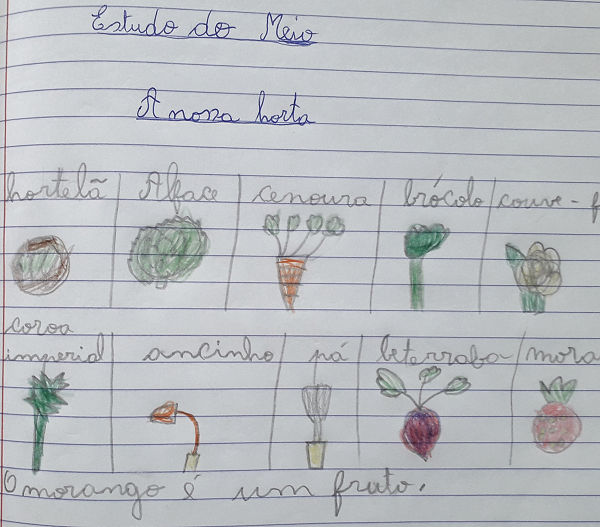 Estudo do Meio
A nossa horta
hortelã Alface cenoura brócolo couve-f
coroa
imperial ancinho pá beterraba mora
O morango é um fruto.